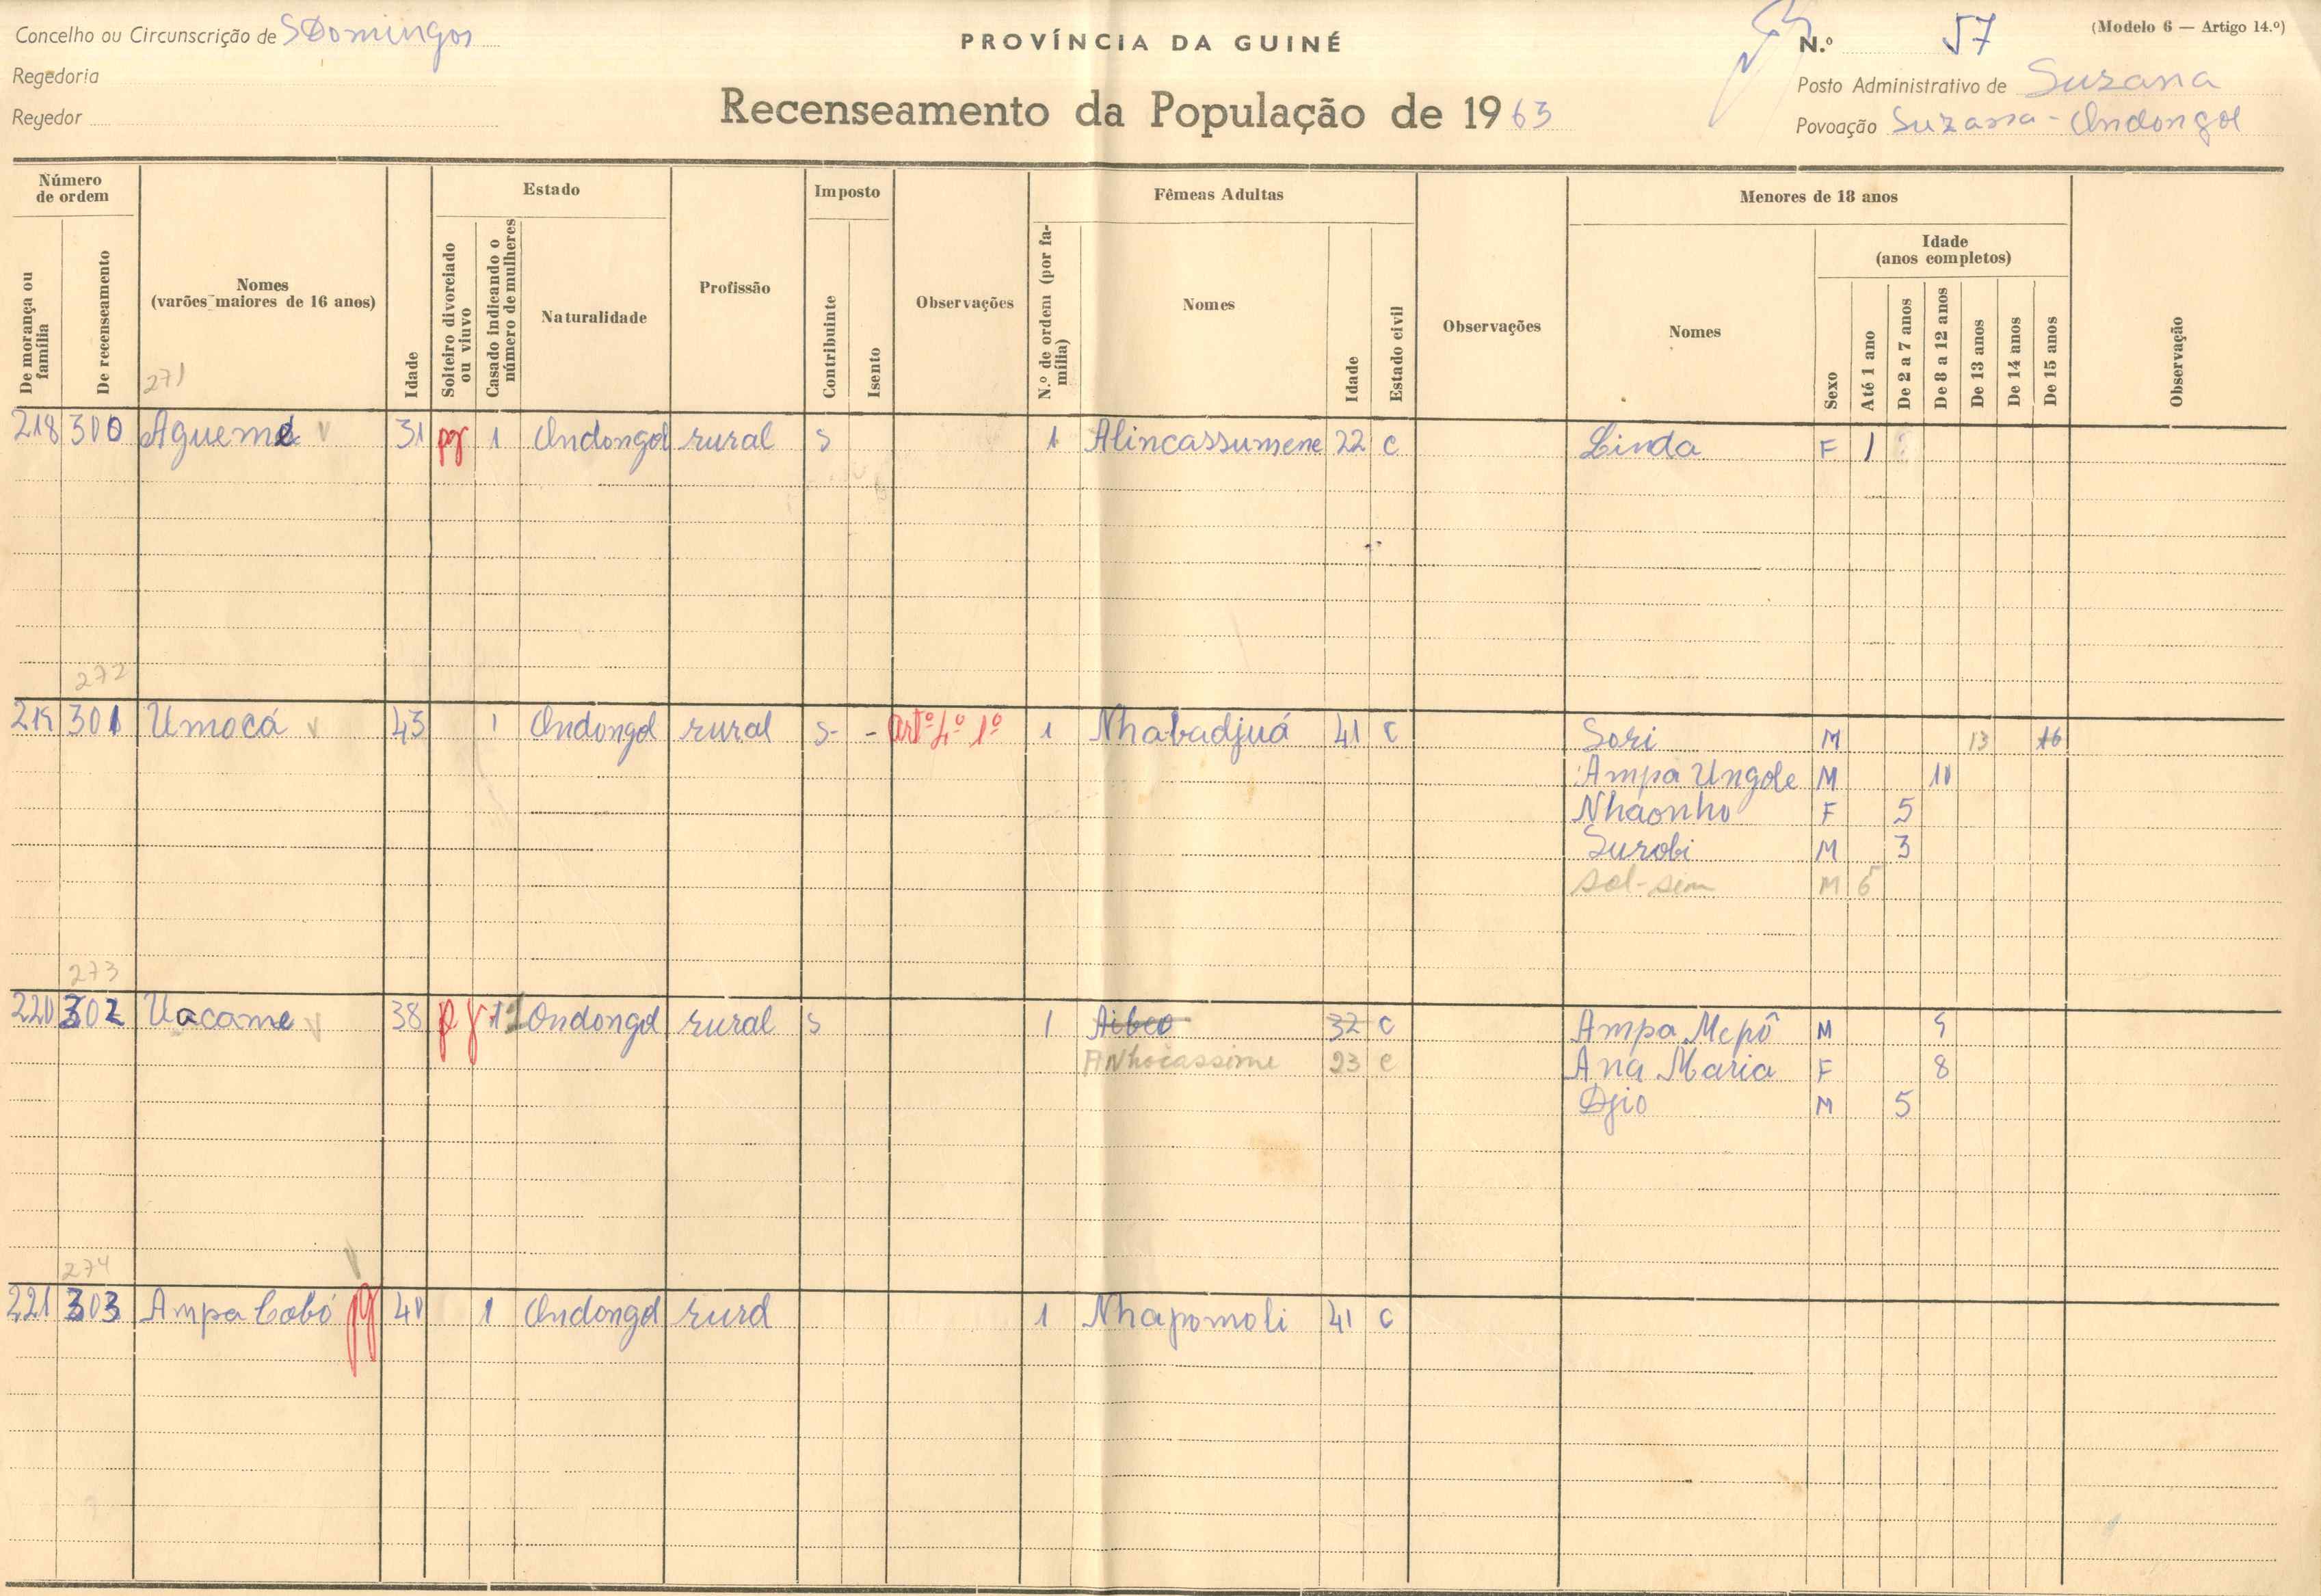 Concelho ou Circunscrição de S Domingos
PROVÍNCIA DA GUINÉ
N.º 57
(Modelo 6 — Artigo 14.º)
Regedoria
Posto Administrativo de Suzana
Regedor
Recenseamento da População de 1963
Povoação Suzana - Ondongol
Número de ordem
De morança ou família
De recenseamento
Nomes
(varões maiores de 16 anos)
271
Idade
Estado
Solteiro divorciado ou viuvo
Casado indicando o número de mulheres
Naturalidade
Profissão
Imposto
Contribuinte
Isento
Observações
Fêmeas Adultas
N.º de ordem (por família)
Nomes
Idade
Estado civil
Observações
Menores de 18 anos
Nomes
Sexo
Idade
(anos completos)
Até 1 ano
De 2 a 7 anos
De 8 a 12 anos
De 13 anos
De 14 anos
De 15 anos
Observação
218 300 Aguemé 31 pg 1 Ondongol rural s 1 Alincassumene 22 c Linda F 1
272
219 301 Umocá 43 1 Ondongol rural s - - Artº 4º 1º 1 Nhabadjuá 41 c Sori M 13 16
Ampa Ungole M 10
Nhaonho F 5
Surobi M 3
Sol-sim M 6
273
220 302 Uacame 38 pg 1 Ondongol rural s 1 Aibeo 32 c Ampa Mepô M 9
ANhocassime 23 c Ana Maria F 8
Djio M 5
274
221 303 Ampa Cobó pg 40 1 Ondongol rural 1 Nhapomoli 41 c